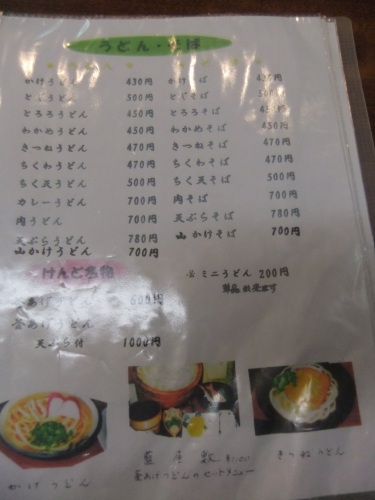 うどん・そば
かけうどん 430円
うどん 500円
とろろうどん 450円
わかめうどん 450円
きつねうどん 470円
ちくわうどん 470円
ちく天うどん 500円
カレーうどん 700円
肉うどん 700円
天ぷらうどん 780円
山かけうどん 700円
かけそば
そば
とろろそば
わかめそば 450円
きつねそば 470円
ちくわそば 470円
ちく天そば 500円
肉そば 700円
天ぷらそば 780円
山かけそば 700円
あげうどん 600円
釜あげうどん
天ぷら付 1000円
ミニうどん 200円
単品
かけうどん
きつねうどん
釜あげうどんのセットメニュー